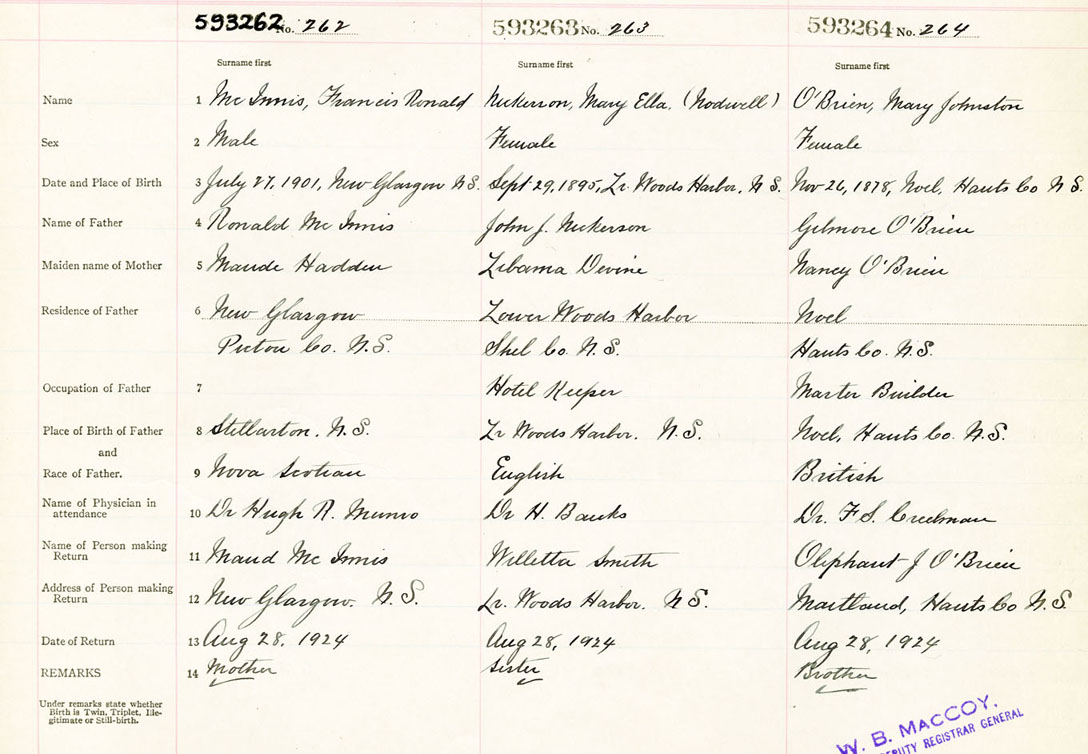 593262 No. 262 593263 No. 263 593264 No. 264
Surname first Surname first Surname first
Name 1 Mc Innis, Francis Ronald Nickerson, Mary Ella (Nodwell) O'Brien, Mary Johnston
Sex 2 Male Female Female
Date and Place of Birth 3 July 27, 1901, New Glasgow N.S. Sept 29, 1895, Lr. Woods Harbor, N.S. Nov 26, 1878, Noel, Hants Co N.S.
Name of Father 4 Ronald Mc Innis John J. Nickerson Gilmore O'Brien
Maiden name of Mother 5 Maude Hadden Devine Nancy O'Brien
Residence of Father 6 New Glasgow Lower Woods Harbor Noel
Pictou Co. N.S. Shel Co. N.S. Hants Co. N.S.
Occupation of Father 7 Hotel Keeper Master Builder
Place of Birth of Father 8 Stellarton. N.S. Lr Woods Harbor. N.S. Noel, Hants Co. N.S.
and
Race of Father. 9 Nova Scotian English British
Name of Physician in
attendance 10 Dr Hugh R. Munro Dr H. Banks Dr. F S. Creelman
Name of Person making
Return 11 Maud Mc Innis Willetta Smith Oliphant J O'Brien
Address of Person making
Return 12 New Glasgow. N.S. Lr. Woods Harbor. N.S. Maitland, Hants Co N.S.
Date of Return 13 Aug 28, 1924 Aug 28, 1924 Aug 28, 1924
REMARKS 14 Mother Sister Brother
Under remarks state whether
Birth is Twin, Triplet, Ille-
gitimate or Still-birth.
W. B. MACCOY.
DEPUTY REGISTRAR GENERAL